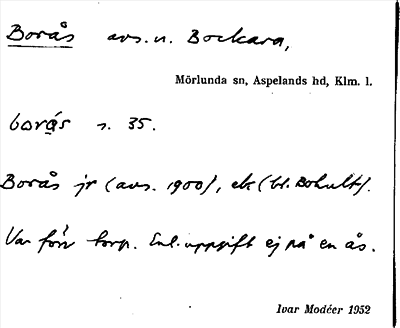 Borås avs. u. Bockara,
Mörlunda sn, Aspelands hd, Klm. l.
borás s. 35.
Borås jr (avs. 1900), ek (bl. Bohult).
Var förr torp. Enl. uppgift ej på en ås.
Ivar Modéer 1952